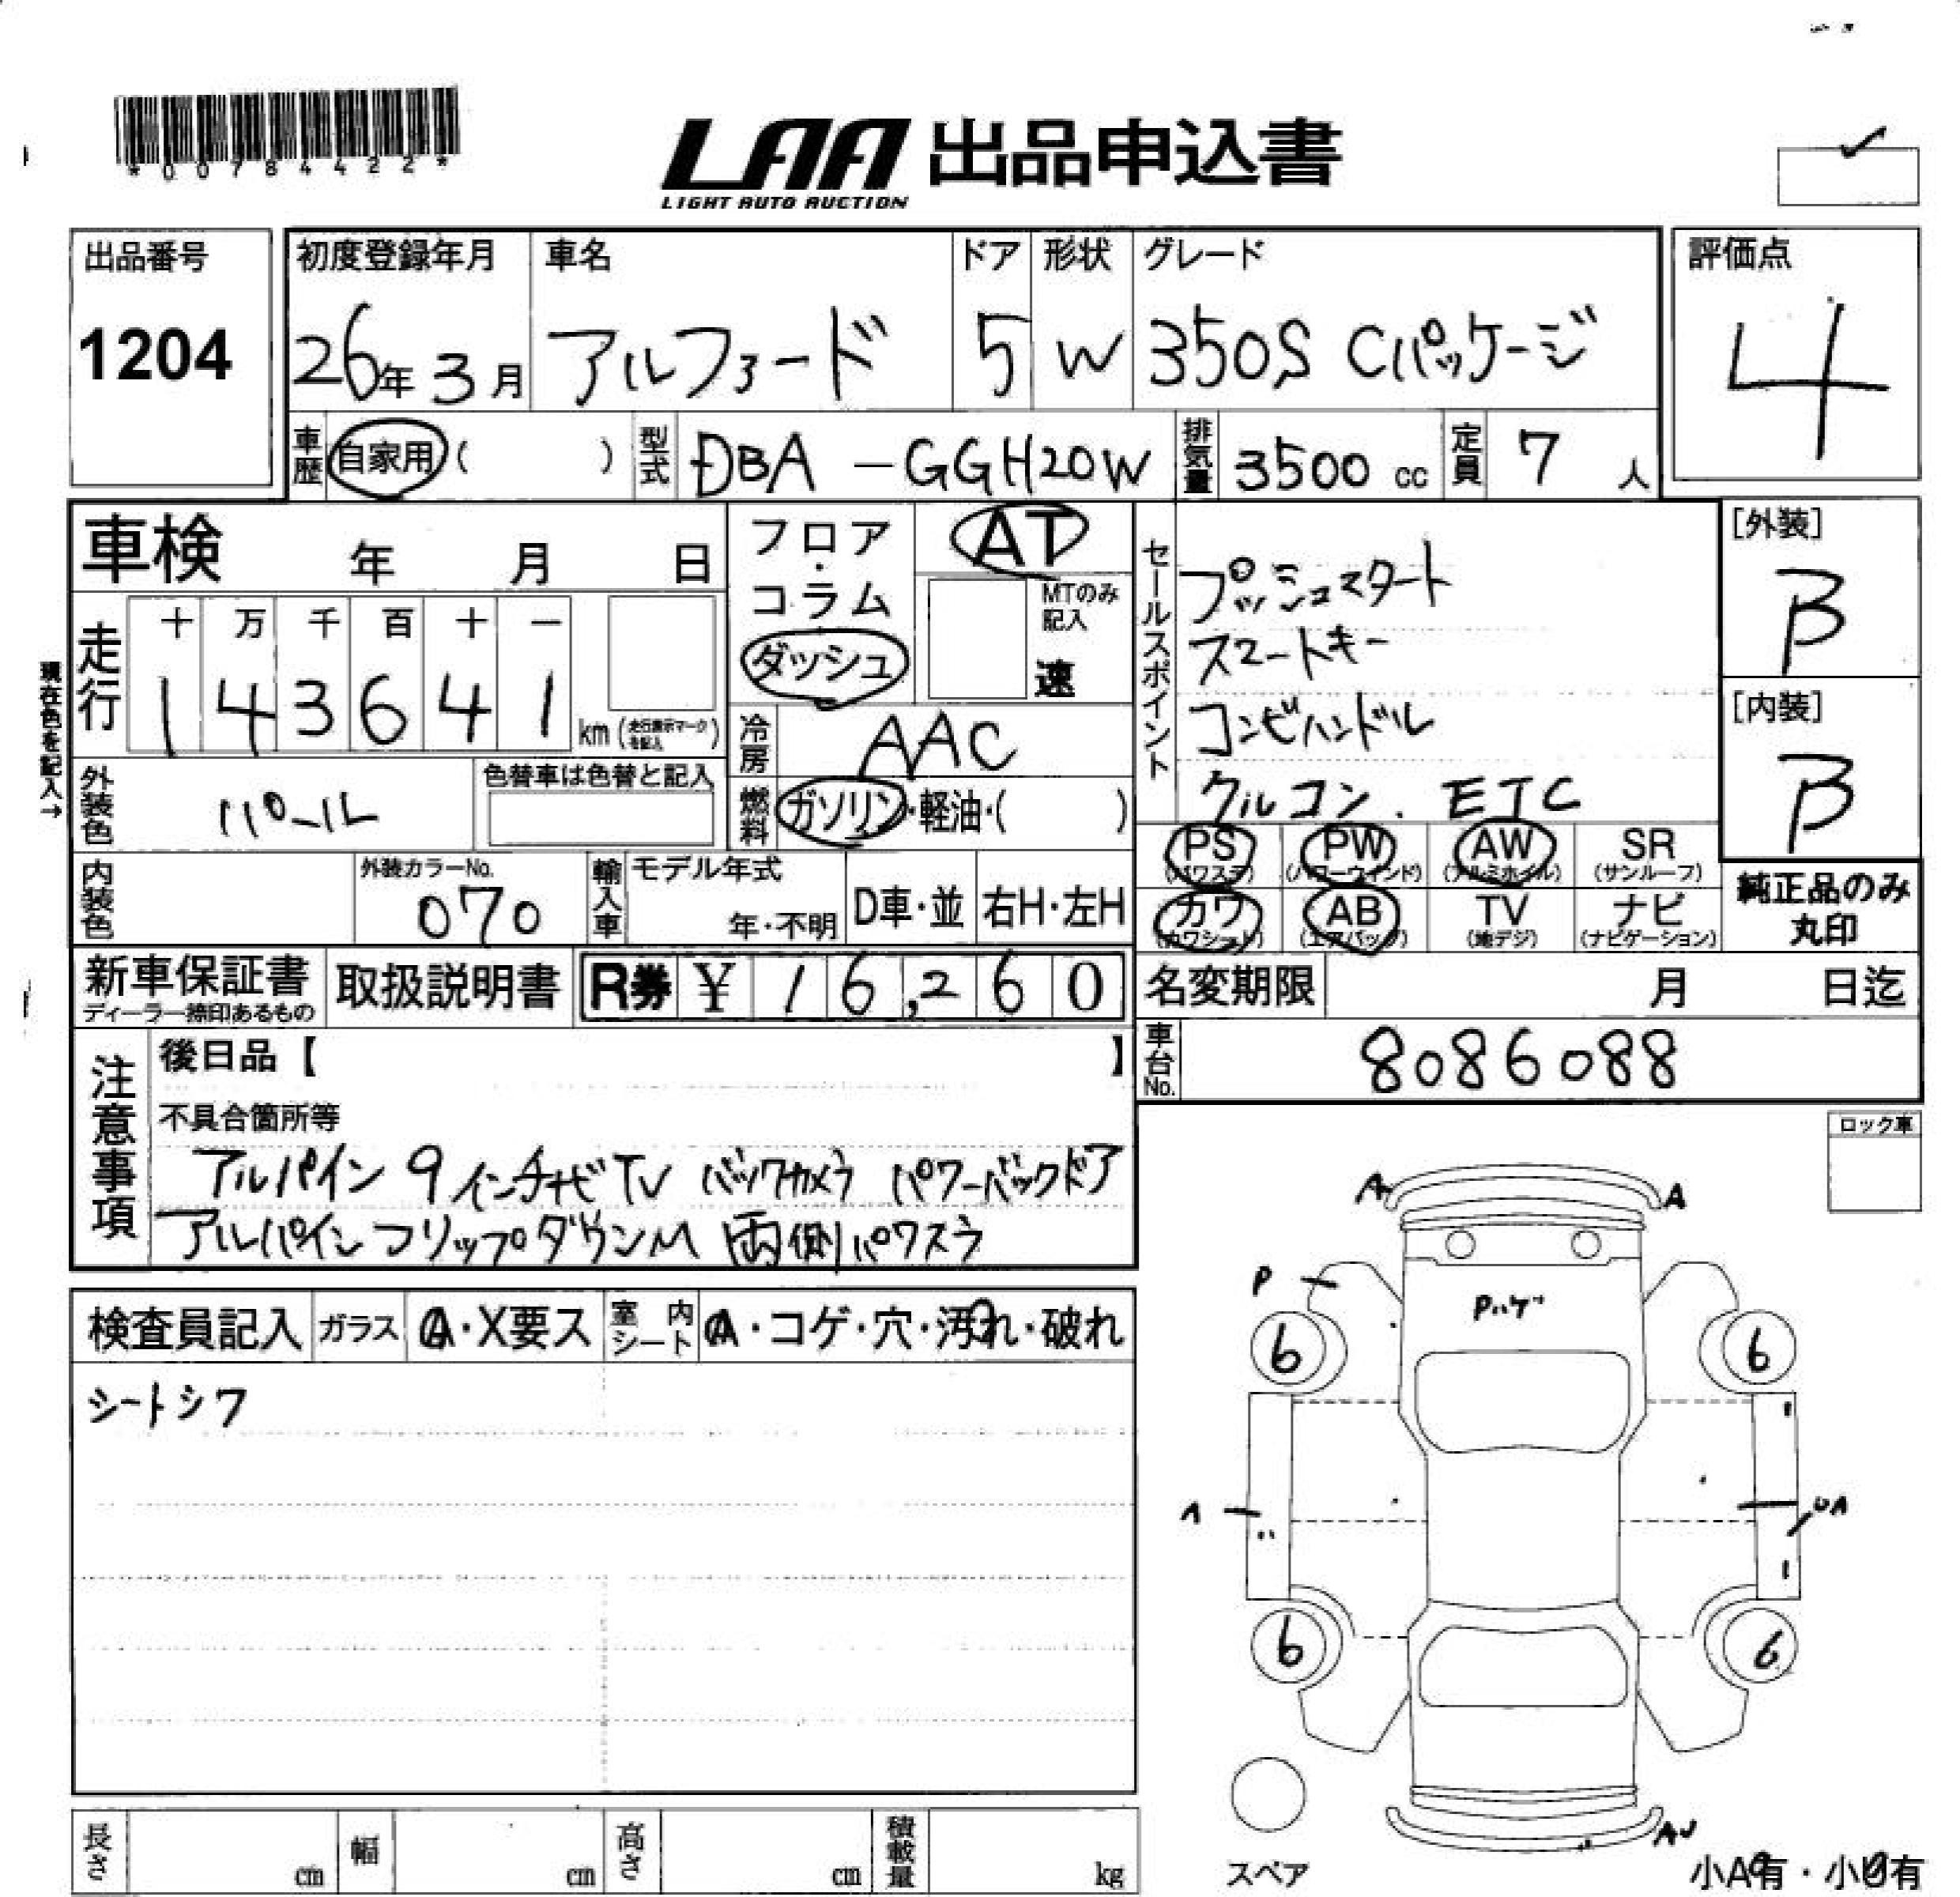 *00784422*
LAA 出品申込書
LIGHT AUTO AUCTION
出品番号 初度登録年月 車名 ドア 形状 グレード 評価点
1204 26年3月 アルファード 5 W 350S Cパッケージ 4
車歴 自家用( ) 型式 DBA -GGH20W 排気量 3500cc 定員 7人
車検 年 月 日
フロア・コラム ダッシュ
AT
MTのみ記入
速
セールスポイント
プッシュスタート
スマートキー
コンビハンドル
クルコン. ETC
[外装]
B
[内装]
B
現在色を記入→
走行 十 万 千 百 十 一
1 4 3 6 4 1 km (走行表示マークを記入)
冷房 AAC
外装色 パール 色替車は色替と記入
燃料 ガソリン・軽油・( )
PS (パワステ) PW (パワーウィンド) AW (アルミホイル) SR (サンルーフ)
カワ (カワシート) AB (エアバック) TV (地デジ) ナビ (ナビゲーション)
純正品のみ
丸印
内装色 外装カラーNo. 070 輸入車 モデル年式 年・不明 D車・並 右H・左H
新車保証書 ディーラー捺印あるもの 取扱説明書 R券 ¥ 16,260 名変期限 月 日迄
車台No. 8086088
注意事項
後日品【 】
不具合箇所等
アルパイン 9インチナビTV バックカメラ パワーバックドア
アルパインフリップダウンM 両側パワスラ
ロック車
検査員記入 ガラス A・X要ス 室内シート A・コゲ・穴・汚れ・破れ
シートシワ
A A
P Pハゲ
6 6
A UA
6 6
AU
スペア
小A有・小U有
長さ cm 幅 cm 高さ cm 積載量 kg